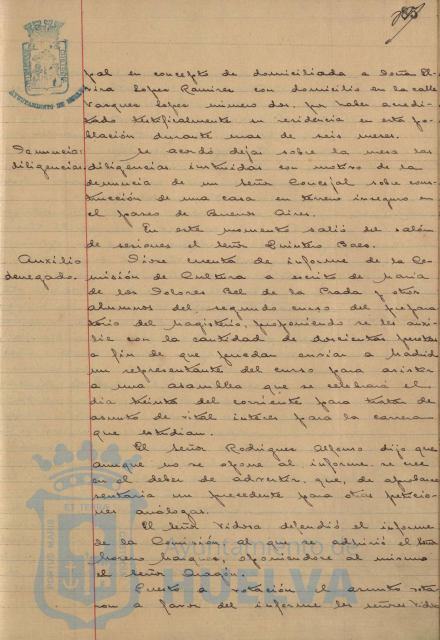 pal en concepto de domiciliada a Doña El-
vira Lopez Ramirez con domicilio en la calle
Vazquez Lopez número dos, por haber acredi-
tado testificalmente su residencia en esta po-
blación durante mas de seis meses.
Denuncia: Se acordó dejar sobre la mesa las
diligencias. diligencias instruidas con motivo de la
denuncia de un Señor Concejal sobre cons-
trucción de una casa en terreno inseguro en
el paseo de Buenos Aires.
En este momento salió del salón
de sesiones el Señor Quintero Baez.
Auxilio Dióse cuenta de informe de la Co-
denegado. misión de Cultura a escrito de Maria
de los Dolores Bel de la Prada y otros
alumnos del segundo curso del prepara-
torio del Magisterio, proponiendo se les auxi-
lie con la cantidad de doscientas pesetas
a fin de que puedan enviar a Madrid
un representante del curso para asistir
a una asamblea que se celebrará el
dia treinta del corriente para tratar de
asunto de vital interés para la carrera
que estudian.
El Señor Rodriguez Alfonso dijo que
aunque no se opone al informe se cree
en el deber de advertir, que, de aprobarse
sentaría un precedente para otras peticio-
nes análogas.
El Señor Vidosa defendió el informe
de la Comisión al que se adhirió el Señor
Moreno Marquez, oponiendose al mismo
el Señor Aragón.
Puesto a votación el asunto vota-
ron a favor del informe los señores Vidosa
AYUNTAMIENTO DE HUELVA
Ayuntamiento de
HUELVA